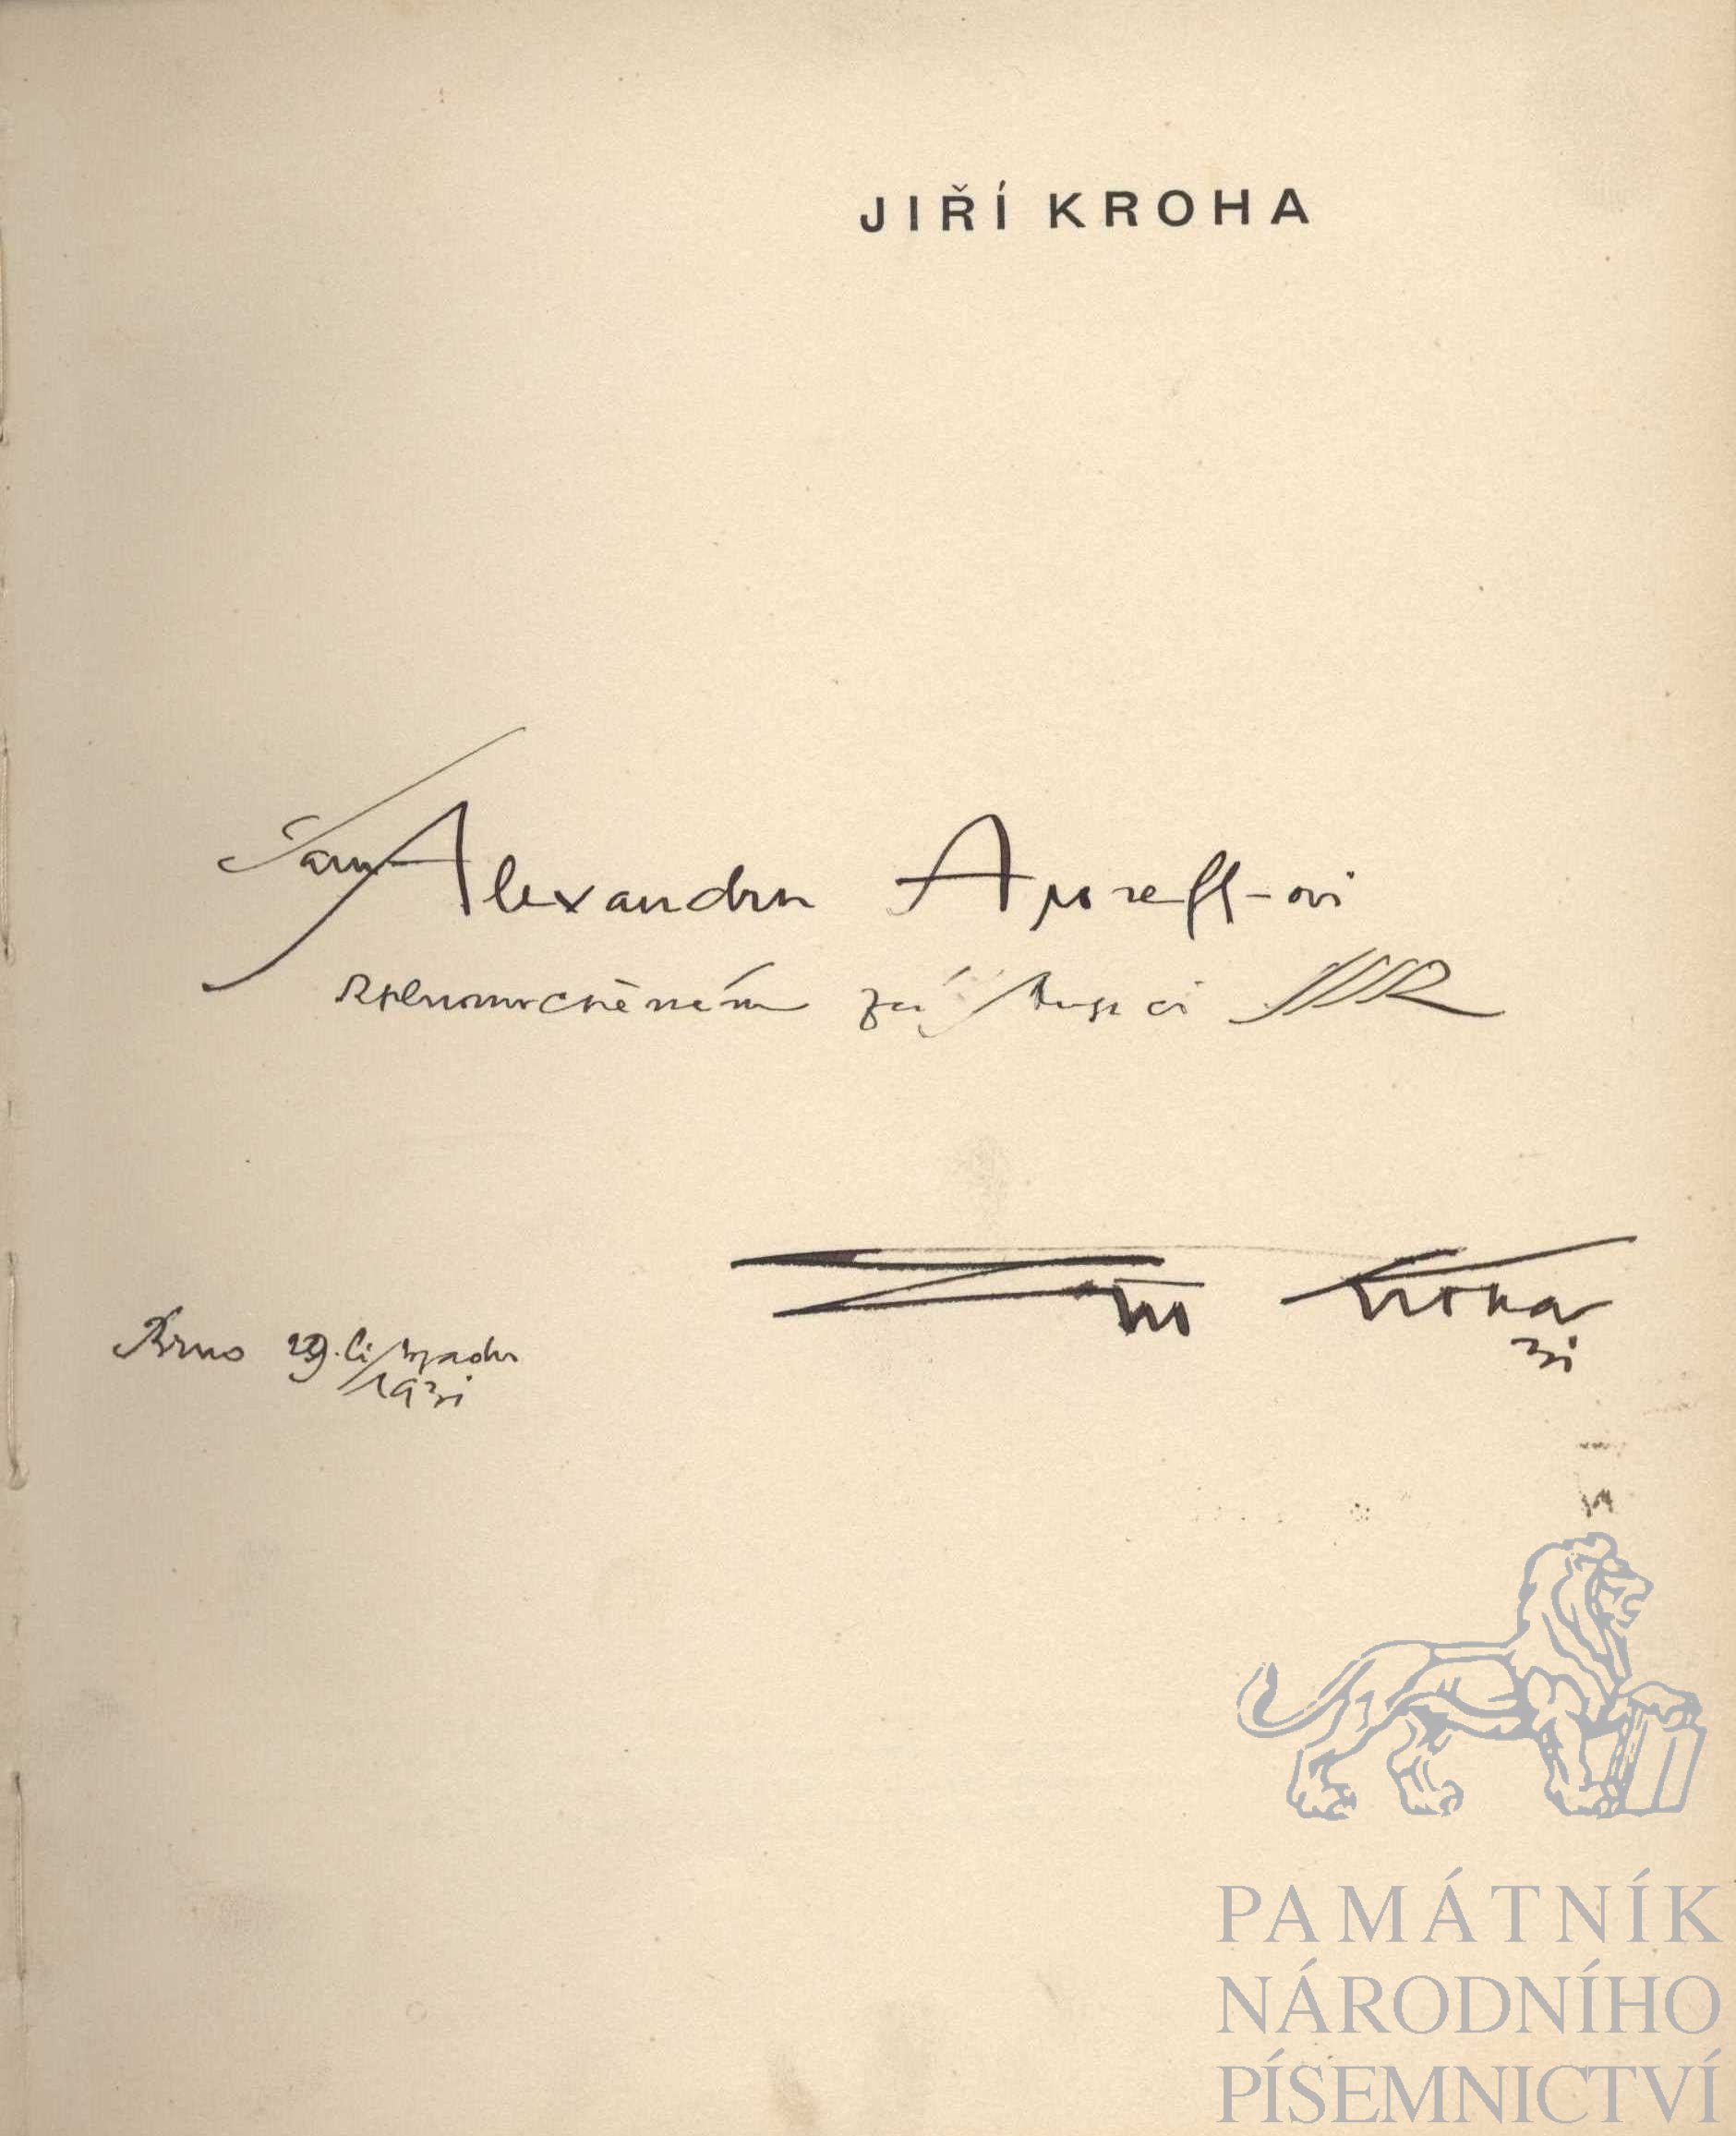 JIŘÍ KROHA
Alexandru -ovi
zplnomocněném zástupci SSSR
Jiří Kroha
31
Brno 29. listopadu
1931
PAMÁTNÍK
NÁRODNÍHO
PÍSEMNICTVÍ